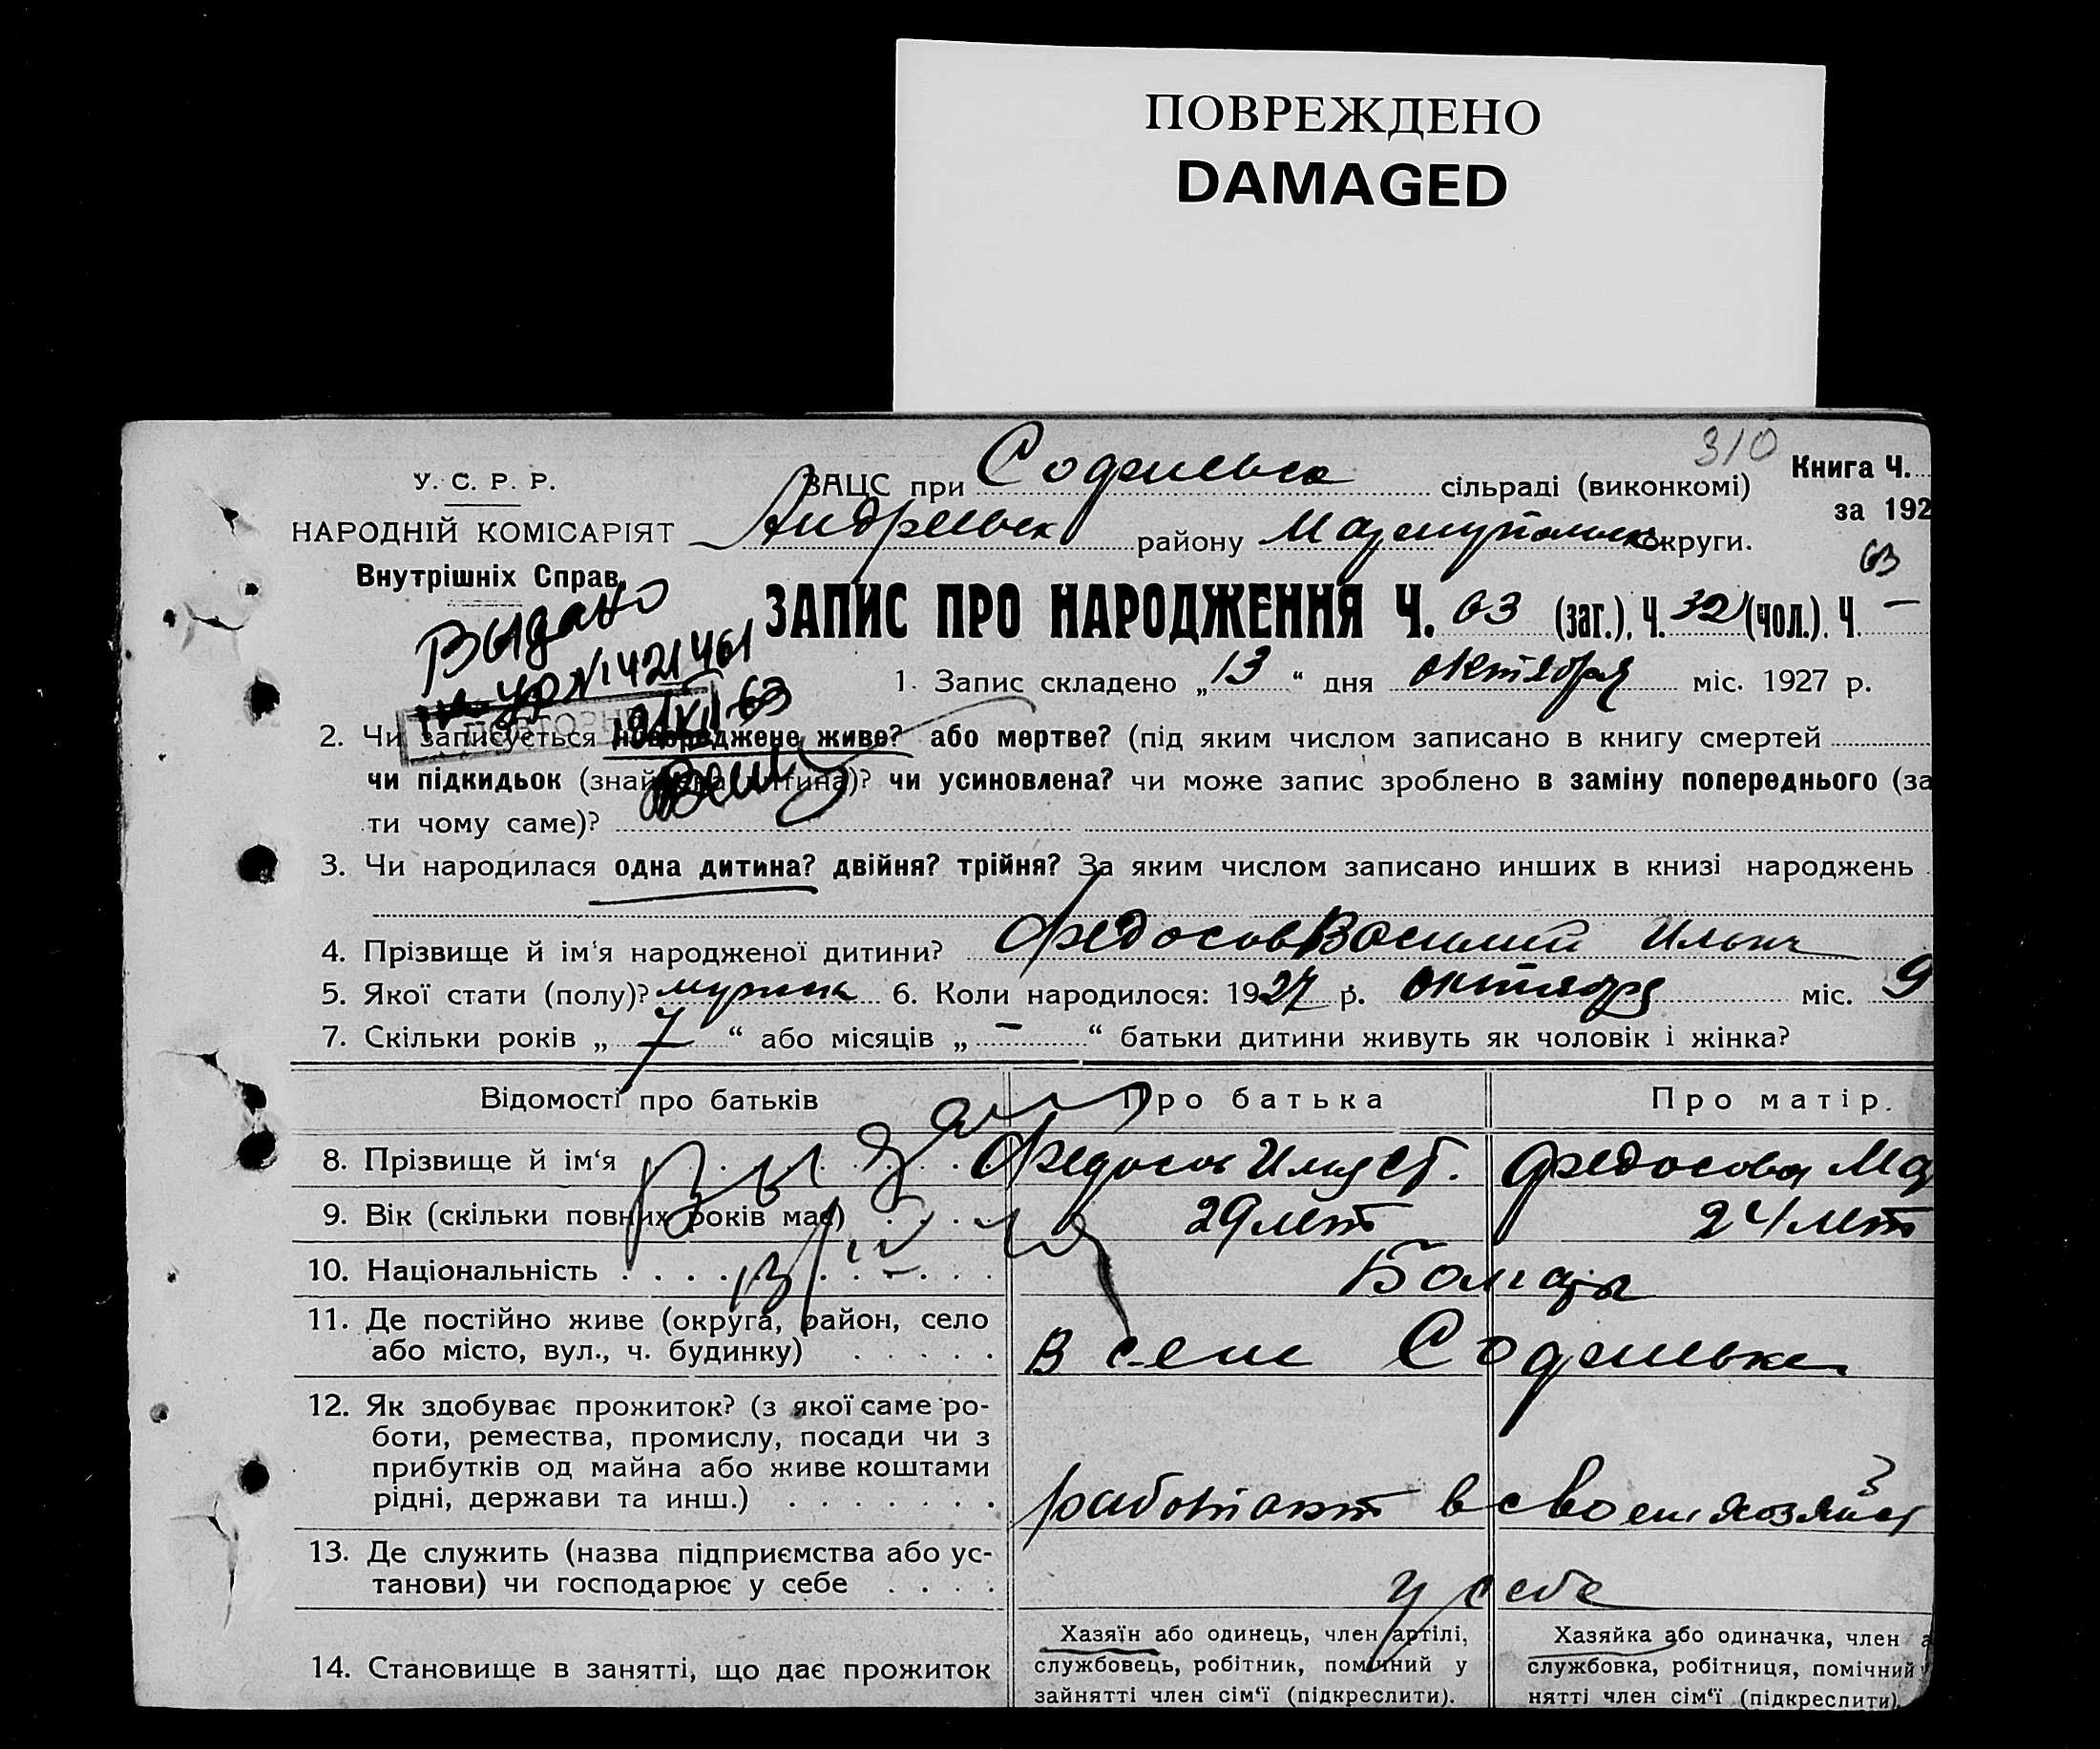 ПОВРЕЖДЕНО
DAMAGED
310
У. С. Р. Р.
НАРОДНІЙ КОМІСАРІЯТ
Внутрішніх Справ
ЗАЦС при сільраді (виконкомі)
Книга Ч.
за 192
Андреевск району Мариупольск округи.
63
ЗАПИС ПРО НАРОДЖЕННЯ Ч. 63 (заг.). Ч. 32 (чол.). Ч. —
Выдано
№ 421461
63
1. Запис складено „13“ дня октября міс. 1927 р.
2. Чи записується новороджене живе? або мертве? (під яким числом записано в книгу смертей
чи підкидьок (знайдена дитина)? чи усиновлена? чи може запис зроблено в заміну попереднього (за
ти чому саме)?
3. Чи народилася одна дитина? двійня? трійня? За яким числом записано инших в книзі народжень
4. Прізвище й ім‘я народженої дитини? Федосов Василий Ильич
5. Якої стати (полу)? мужск 6. Коли народилося: 1927 р. октября міс. 9
7. Скільки років „7“ або місяців „—“ батьки дитини живуть як чоловік і жінка?
Відомості про батьків Про батька Про матір.
8. Прізвище й ім‘я Федосов Илья Ст. Федосова Ма
9. Вік (скільки повних років має) 29 лет 24 лет
10. Національність Болгары
11. Де постійно живе (округа, район, село
або місто, вул., ч. будинку) В селе
12. Як здобуває прожиток? (з якої саме ро-
боти, ремества, промислу, посади чи з
прибутків од майна або живе коштами
рідні, держави та инш.) работают в своем хозяйст
13. Де служить (назва підприємства або ус-
танови) чи господарює у себе у себе
14. Становище в занятті, що дає прожиток
Хазяїн або одинець, член артілі,
службовець, робітник, помічний у
зайнятті член сім‘ї (підкреслити).
Хазяйка або одиначка, член а
службовка, робітниця, помічний
нятті член сім‘ї (підкреслити).